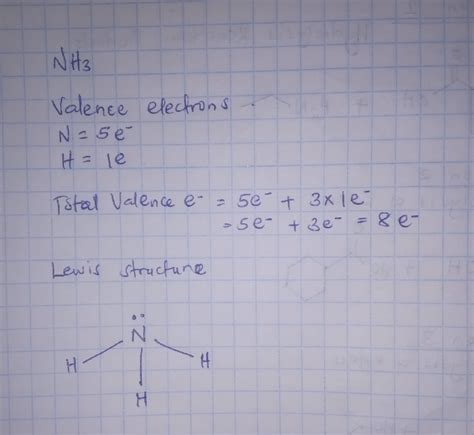 NH3
Valence electrons
N = 5e⁻
H = 1e
Total Valence e⁻ = 5e⁻ + 3x1e⁻
= 5e⁻ + 3e⁻ = 8e⁻
Lewis structure
N
H H
H